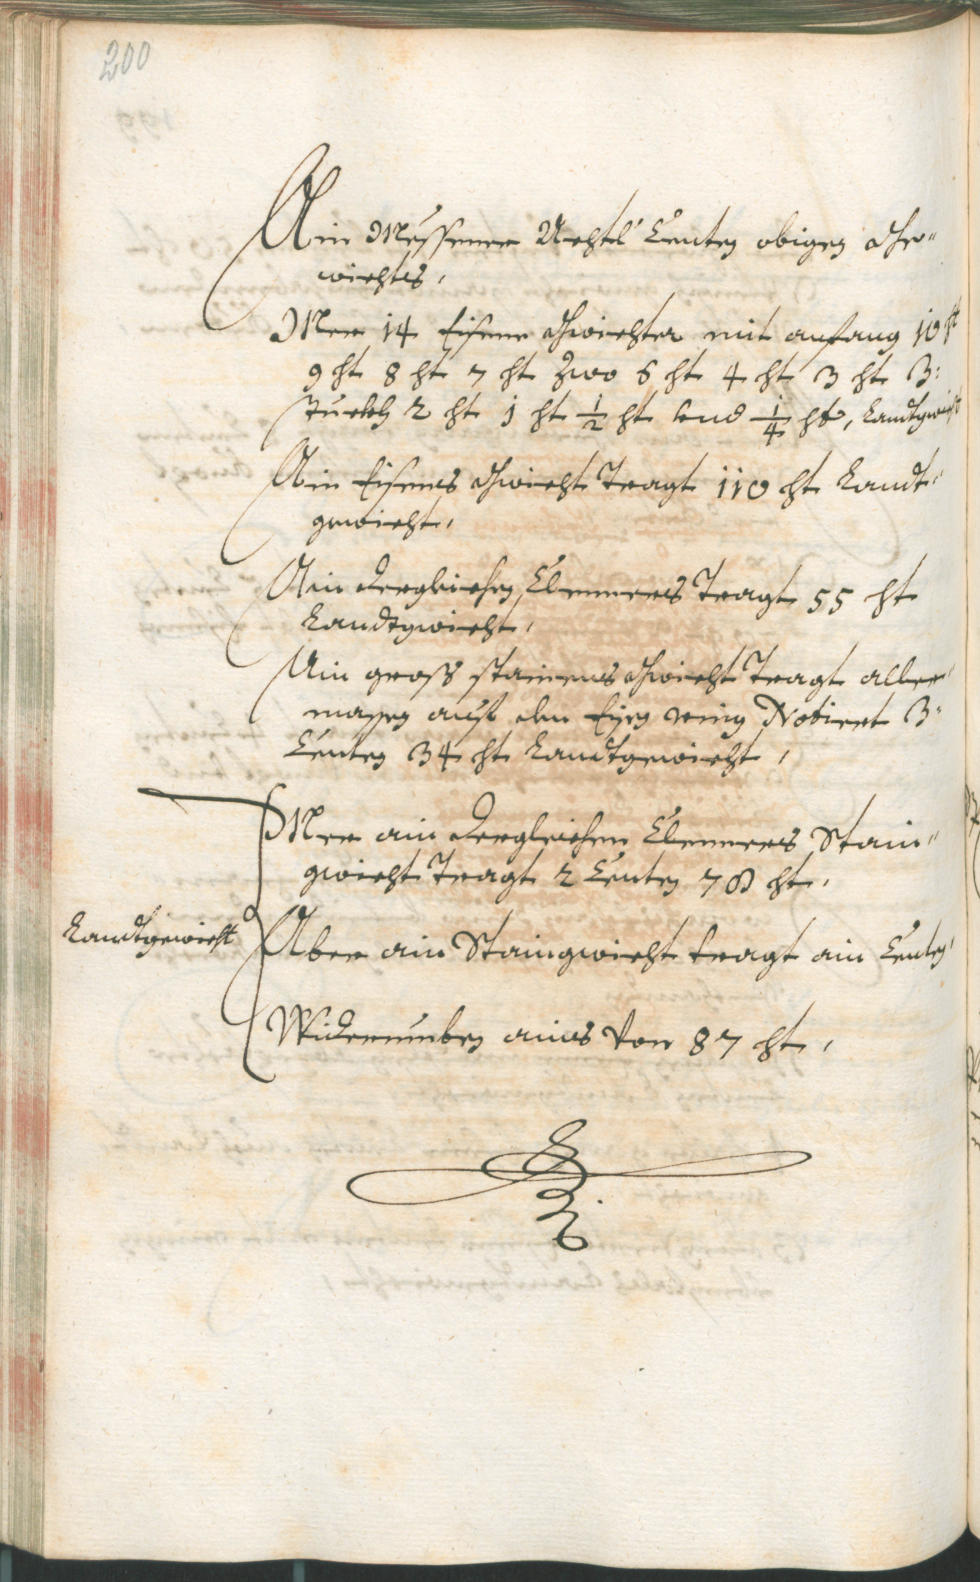 200
Ain Messener Achtl Centen obigen Ge-
wichts,
Mer 14 Eisene Gwichter mit anfang 10 ℔
9 ℔ 8 ℔ 7 ℔ Zwo 6 ℔ 4 ℔ 3 ℔ 3:
Stuckh 2 ℔ 1 ℔ 1/2 ℔ und 1/4 ℔, Landtgwicht
Ain Eisenes Gwicht Tragt 110 ℔ Landt-
gewicht,
Ain dergleichen Clenners Tragt 55 ℔
Landtgwicht,
Ain gross stainenes Gwicht Tragt aller-
massen auf den Eisen ring Notiert 3:
Centen 34 ℔ Landtgewicht,
Mer ain dergleichen Clenners Stain-
gwicht Tragt 2 Centen 78 ℔,
Landtgewicht
Aber ain Staingwicht tragt ain Centen,
Widerumben aines von 87 ℔,